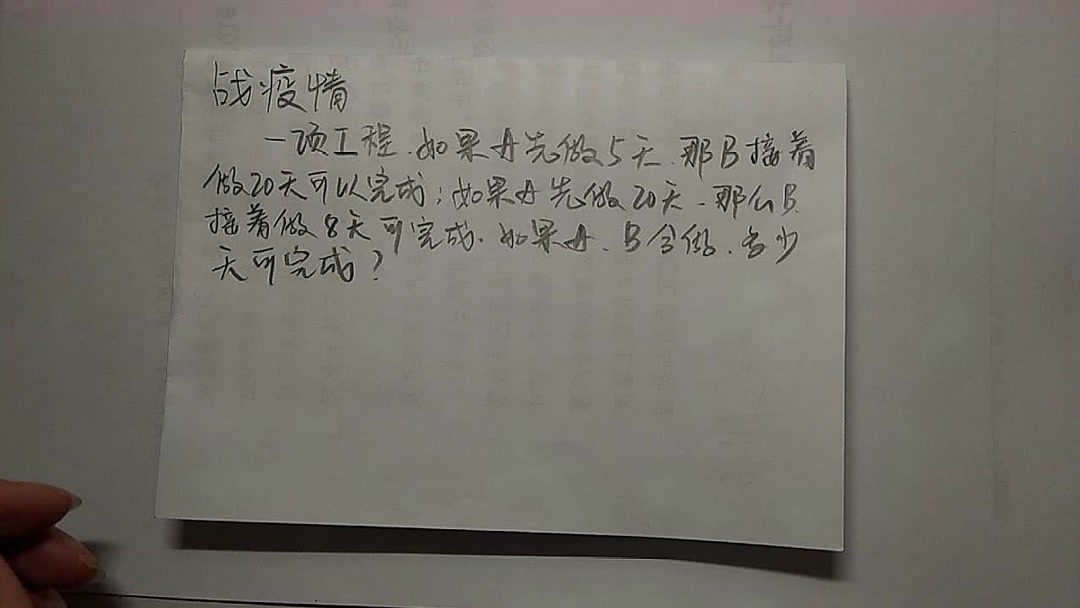 战疫情
一项工程.如果A先做5天.那B接着
做20天可以完成;如果A先做20天.那么B.
接着做8天可完成.如果A、B合做.多少
天可完成?